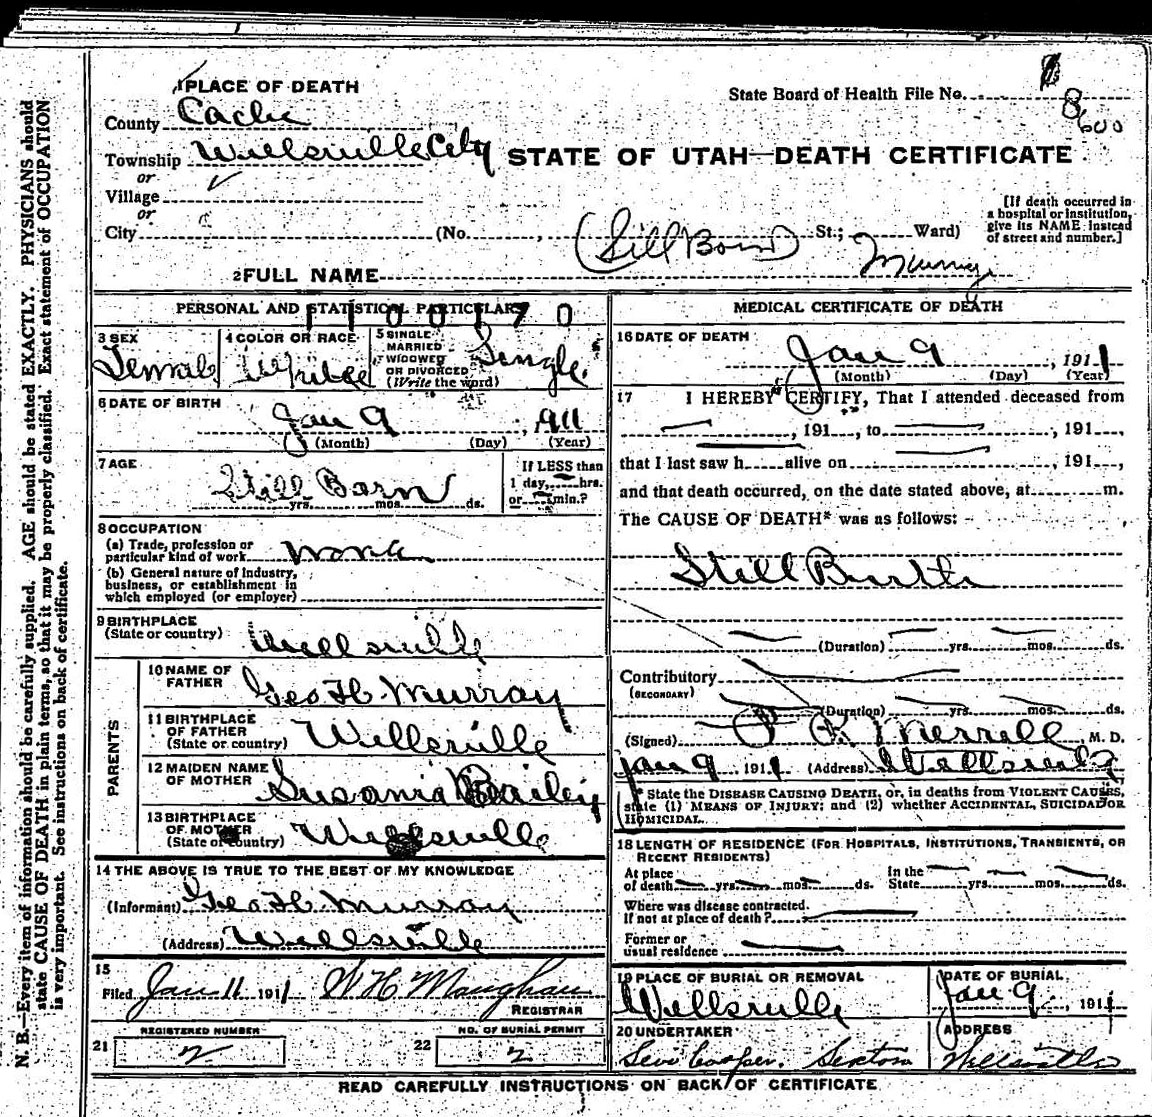 1 PLACE OF DEATH
State Board of Health File No. 8
600
County Cache
Township Wellsville City
STATE OF UTAH—DEATH CERTIFICATE
or
Village
or
City (No. , (Still Born) St.; Ward)
[If death occurred in a hospital or institution, give its NAME instead of street and number.]
2 FULL NAME Murray
PERSONAL AND STATISTICAL PARTICULARS
1100170
3 SEX Female
4 COLOR OR RACE White
5 SINGLE MARRIED WIDOWED OR DIVORCED (Write the word) Single
6 DATE OF BIRTH Jan 9, 1911
(Month) (Day) (Year)
7 AGE Still Born
yrs. mos. ds.
If LESS than 1 day, hrs. or min.?
8 OCCUPATION
(a) Trade, profession or particular kind of work None
(b) General nature of industry, business, or establishment in which employed (or employer)
9 BIRTHPLACE (State or country) Wellsville
PARENTS
10 NAME OF FATHER Geo H Murray
11 BIRTHPLACE OF FATHER (State or country) Wellsville
12 MAIDEN NAME OF MOTHER Susania Bailey
13 BIRTHPLACE OF MOTHER (State or country) Wellsville
14 THE ABOVE IS TRUE TO THE BEST OF MY KNOWLEDGE
(Informant) Geo H Murray
(Address) Wellsville
15
Filed Jan 11 1911 W H Maughan
REGISTRAR
REGISTERED NUMBER
21 2
NO. OF BURIAL PERMIT
22 2
MEDICAL CERTIFICATE OF DEATH
16 DATE OF DEATH
Jan 9, 1911
(Month) (Day) (Year)
17 I HEREBY CERTIFY, That I attended deceased from
, 191 , to , 191 ,
that I last saw h alive on , 191 ,
and that death occurred, on the date stated above, at m.
The CAUSE OF DEATH* was as follows:
Still Birth
(Duration) yrs. mos. ds.
Contributory
(SECONDARY)
(Duration) yrs. mos. ds.
(Signed) Merrell M. D.
Jan 9 1911 (Address) Wellsville
* State the DISEASE CAUSING DEATH, or, in deaths from VIOLENT CAUSES, state (1) MEANS OF INJURY; and (2) whether ACCIDENTAL, SUICIDAL OR HOMICIDAL.
18 LENGTH OF RESIDENCE (FOR HOSPITALS, INSTITUTIONS, TRANSIENTS, OR RECENT RESIDENTS)
At place of death yrs. mos. ds. In the State yrs. mos. ds.
Where was disease contracted. If not at place of death?
Former or usual residence
19 PLACE OF BURIAL OR REMOVAL
Wellsville
DATE OF BURIAL
Jan 9, 1911
20 UNDERTAKER
Levi Cooper. Sexton
ADDRESS
Wellsville
READ CAREFULLY INSTRUCTIONS ON BACK OF CERTIFICATE
N. B.—Every item of information should be carefully supplied. AGE should be stated EXACTLY. PHYSICIANS should
state CAUSE OF DEATH in plain terms, so that it may be properly classified. Exact statement of OCCUPATION
is very important. See instructions on back of certificate.